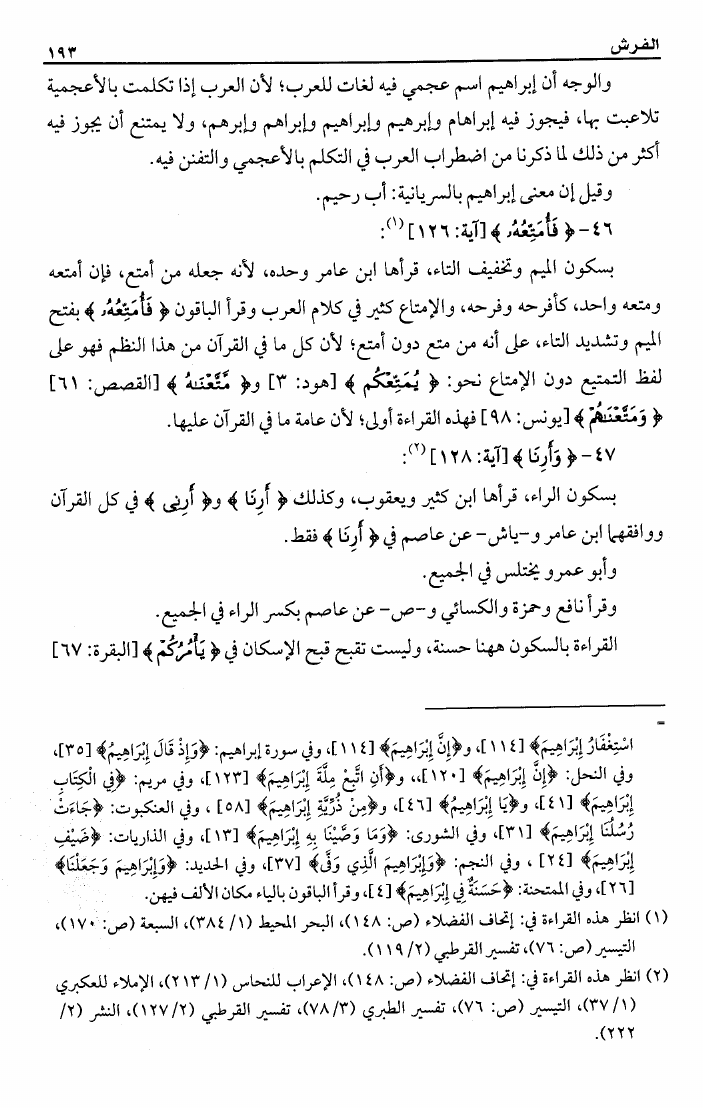 الفرش ١٩٣
والوجه أن إبراهيم اسم عجمي فيه لغات للعرب؛ لأن العرب إذا تكلمت بالأعجمية
تلاعبت بها، فيجوز فيه إبراهام وإبرهيم وإبراهيم وإبراهم وإبرهم، ولا يمتنع أن يجوز فيه
أكثر من ذلك لما ذكرنا من اضطراب العرب في التكلم بالأعجمي والتفنن فيه.
وقيل إن معنى إبراهيم بالسريانية: أب رحيم.
٤٦- ﴿ فَأُمَتِّعُهُۥ ﴾ [آية: ١٢٦] (١):
بسكون الميم وتخفيف التاء، قرأها ابن عامر وحده، لأنه جعله من أمتع، فإن أمتعه
ومتعه واحد، كأفرحه وفرحه، والإمتاع كثير في كلام العرب وقرأ الباقون ﴿ فَأُمَتِّعُهُۥ ﴾ بفتح
الميم وتشديد التاء، على أنه من متع دون أمتع؛ لأن كل ما في القرآن من هذا النظم فهو على
لفظ التمتيع دون الإمتاع نحو: ﴿ يُمَتِّعْكُم ﴾ [هود: ٣] و﴿ مَّتَّعْنَـٰهُ ﴾ [القصص: ٦١]
﴿ وَمَتَّعْنَـٰهُمْ ﴾ [يونس: ٩٨] فهذه القراءة أولى؛ لأن عامة ما في القرآن عليها.
٤٧- ﴿ وَأَرِنَا ﴾ [آية: ١٢٨] (٢):
بسكون الراء، قرأها ابن كثير ويعقوب، وكذلك ﴿ أَرِنَا ﴾ و﴿ أَرِنِى ﴾ في كل القرآن
ووافقهما ابن عامر و-ياش- عن عاصم في ﴿ أَرِنَا ﴾ فقط.
وأبو عمرو يختلس في الجميع.
وقرأ نافع وحمزة والكسائي و-ص- عن عاصم بكسر الراء في الجميع.
القراءة بالسكون ههنا حسنة، وليست تقبح قبح الإسكان في ﴿ يَأْمُرُكُمْ ﴾ [البقرة: ٦٧]
=
اسْتِغْفَارُ إِبْرَاهِيمَ﴾ [١١٤]، و﴿إِنَّ إِبْرَاهِيمَ﴾ [١١٤]، وفي سورة إبراهيم: ﴿وَإِذْ قَالَ إِبْرَاهِيمُ﴾ [٣٥]،
وفي النحل: ﴿إِنَّ إِبْرَاهِيمَ﴾ [١٢٠]،، و﴿أَنِ اتَّبِعْ مِلَّةَ إِبْرَاهِيمَ﴾ [١٢٣]، وفي مريم: ﴿فِي الْكِتَابِ
إِبْرَاهِيمَ﴾ [٤١]، و﴿يَا إِبْرَاهِيمُ﴾ [٤٦]، و﴿مِنْ ذُرِّيَّةِ إِبْرَاهِيمَ﴾ [٥٨] ، وفي العنكبوت: ﴿جَاءَتْ
رُسُلُنَا إِبْرَاهِيمَ﴾ [٣١]، وفي الشورى: ﴿وَمَا وَصَّيْنَا بِهِ إِبْرَاهِيمَ﴾ [١٣]، وفي الذاريات: ﴿ضَيْفِ
إِبْرَاهِيمَ﴾ [٢٤] ، وفي النجم: ﴿وَإِبْرَاهِيمَ الَّذِي وَفَّى﴾ [٣٧]، وفي الحديد: ﴿وَإِبْرَاهِيمَ وَجَعَلْنَا﴾
[٢٦]، وفي الممتحنة: ﴿حَسَنَةٌ فِي إِبْرَاهِيمَ﴾ [٤]، وقرأ الباقون بالياء مكان الألف فيهن.
(١) انظر هذه القراءة في: إتحاف الفضلاء (ص: ١٤٨)، البحر المحيط (١/ ٣٨٤)، السبعة (ص: ١٧٠)،
التيسير (ص: ٧٦)، تفسير القرطبي (٢/ ١١٩).
(٢) انظر هذه القراءة في: إتحاف الفضلاء (ص: ١٤٨)، الإعراب للنحاس (١/ ٢١٣)، الإملاء للعكبري
(١/ ٣٧)، التيسير (ص: ٧٦)، تفسير الطبري (٣/ ٧٨)، تفسير القرطبي (٢/ ١٢٧)، النشر (٢/
٢٢٢).